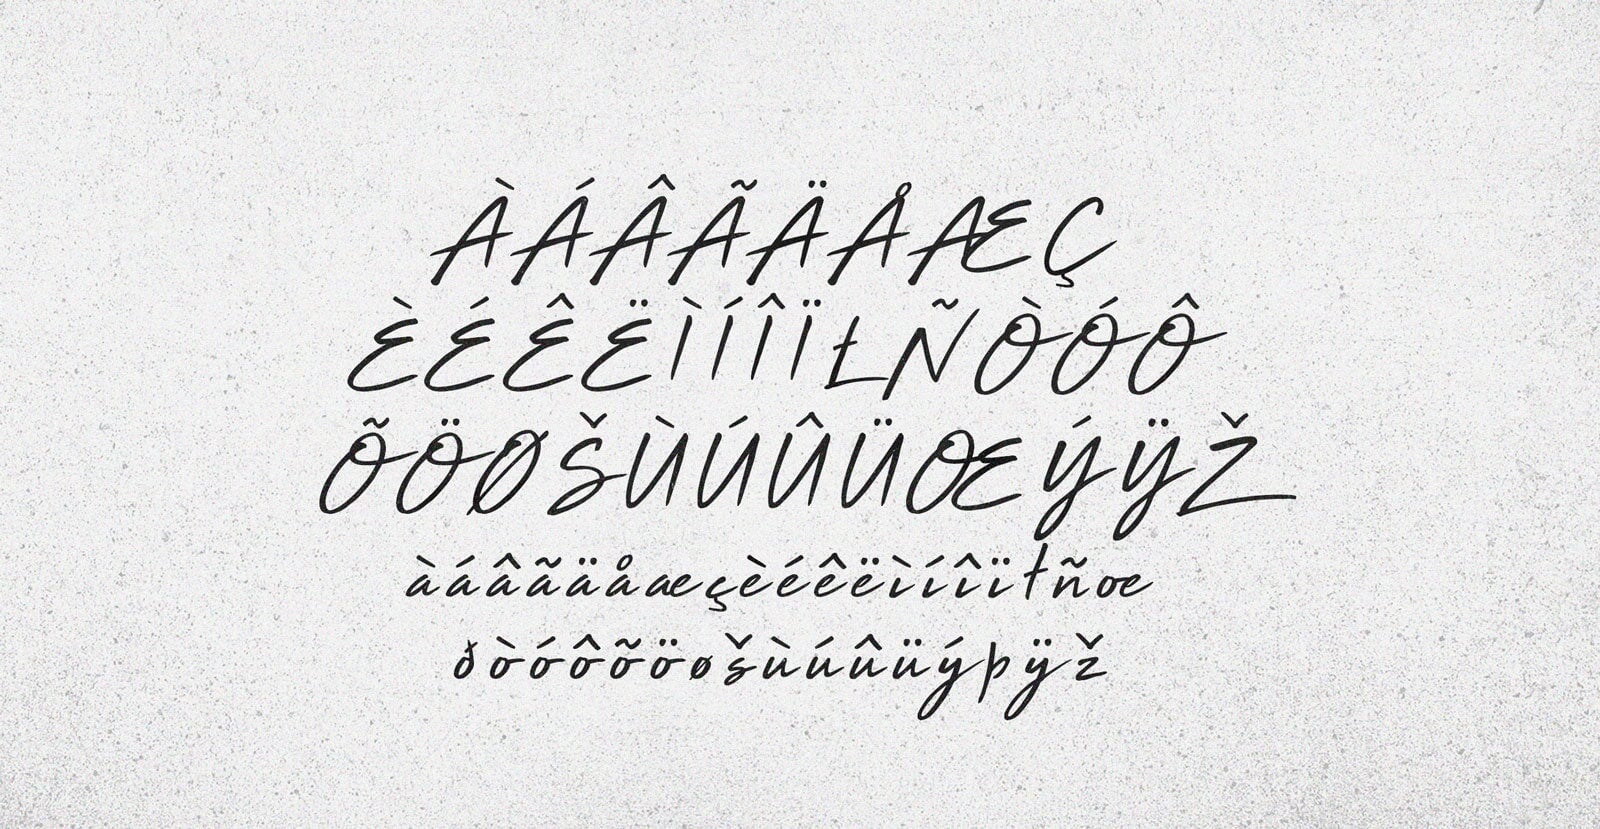 ÀÁÂÃÄÅÆÇ
ÈÉÊËÌÍÎÏŁÑÒÓÔ
ÕÖØŠÙÚÛÜŒÝŸŽ
àáâãäåæçèéêëìíîïłñœ
ðòóôõöøšùúûüýþÿž